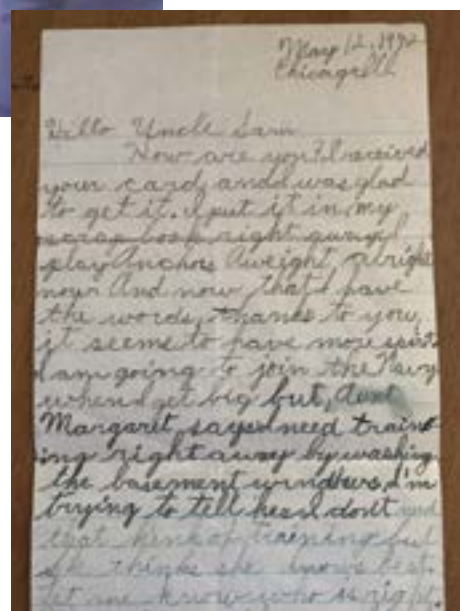 May 12, 1942
Chicago Ill
Hello Uncle Sam
How are you? I received
your card, and I was glad
to get it. I put it in my
scrap book right away. I
play Anchors Aweigh alright
now. And now that I have
the words, thanks to you,
it seems to have more spirit
I am going to join the Navy
when I get big but, Aunt
Margaret, says I need train-
ing right away by washing
the basement windows, I'm
trying to tell her I don't need
that kind of training but
she thinks she knows best.
Let me know who is right.